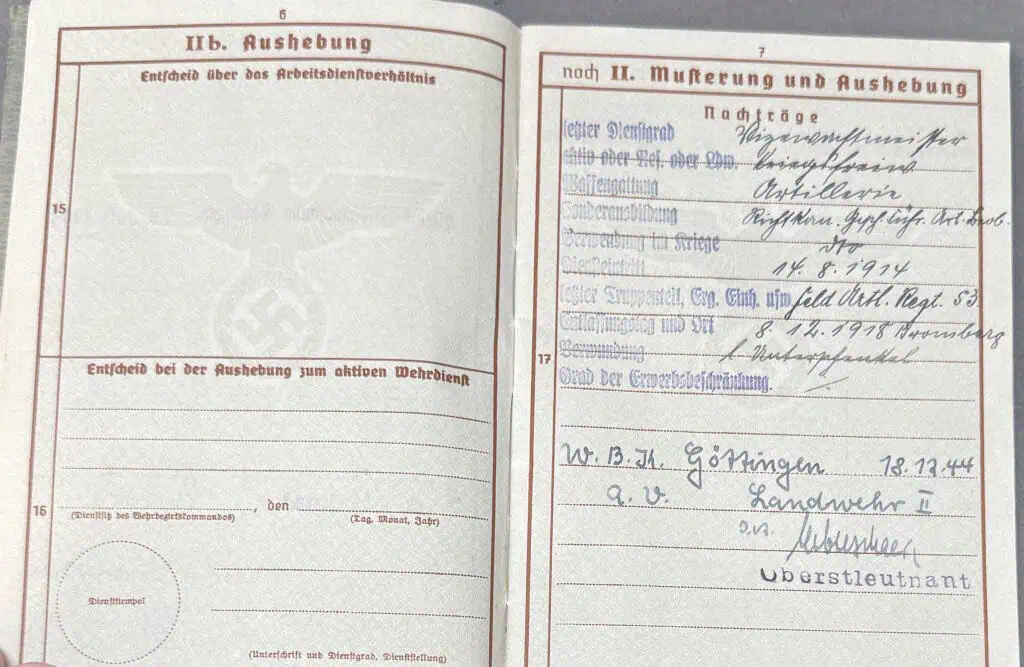 6
IIb. Aushebung
Entscheid über das Arbeitsdienstverhältnis
15
Entscheid bei der Aushebung zum aktiven Wehrdienst
16
, den
(Dienstsitz des Wehrbezirkskommandos)
(Tag, Monat, Jahr)
Dienststempel
(Unterschrift und Dienstgrad, Dienststellung)
7
noch II. Musterung und Aushebung
Nachträge
letzter Dienstgrad Vizewachtmeister
aktiv oder Res. oder Ldw.
Waffengattung Artillerie
Sonderausbildung Richtkan. Gesch. Führ. Art. Beob.
Verwendung im Kriege dto
Diensteintritt 14. 8. 1914
letzter Truppenteil, Ers. Einh. usw. Feld Artl. Regt. 53
Entlassungstag und Ort 8. 12. 1918 Bromberg
17
Verwundung l. Unterschenkel
Grad der Erwerbsbeschränkung.
W. B. K. Göttingen 18.12.44
a. v. Landwehr II
Oberstleutnant